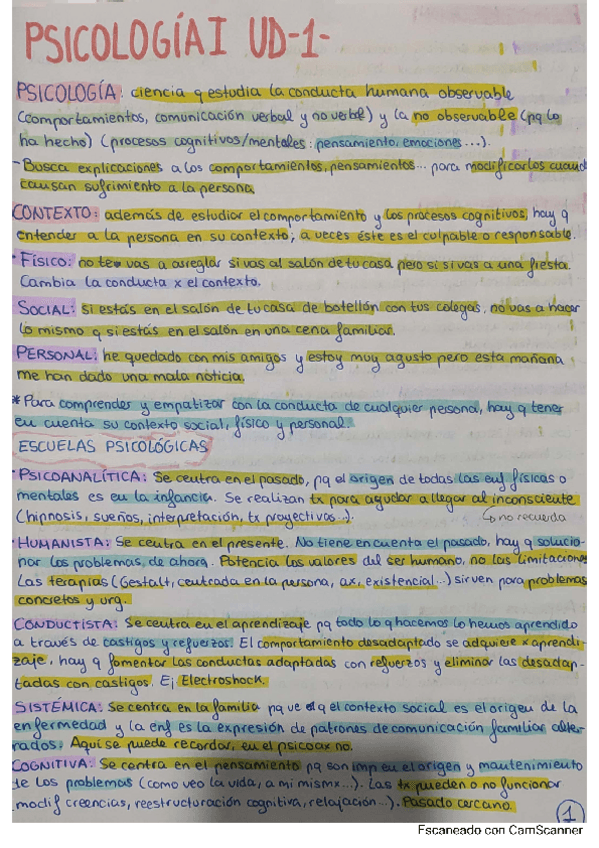 PSICOLOGÍA I UD-1-
PSICOLOGÍA: ciencia q estudia la conducta humana observable
(comportamientos, comunicación verbal y no verbal) y la no observable (pq lo
ha hecho) (procesos cognitivos/mentales: pensamiento, emociones...).
-Busca explicaciones a los comportamientos, pensamientos... para modificarlos cuando
causan sufrimiento a la persona.
CONTEXTO: además de estudiar el comportamiento y los procesos cognitivos, hay q
entender a la persona en su contexto; a veces éste es el culpable o responsable.
· FÍSICO: no te vas a arreglar si vas al salón de tu casa pero si si vas a una fiesta.
Cambia la conducta x el contexto.
SOCIAL: si estás en el salón de tu casa de botellón con tus colegas, no vas a hacer
lo mismo q si estás en el salón en una cena familiar.
PERSONAL: he quedado con mis amigos y estoy muy agusto pero esta mañana
me han dado una mala noticia.
*Para comprender y empatizar con la conducta de cualquier persona, hay q tener
en cuenta su contexto social, físico y personal.
ESCUELAS PSICOLÓGICAS
· PSICOANALÍTICA: Se centra en el pasado, pq el origen de todas las enf físicas o
mentales es en la infancia. Se realizan tx para ayudar a llegar al inconsciente
(hipnosis, sueños, interpretación, tx proyectivos...). ↳no recuerda
· HUMANISTA: Se centra en el presente. No tiene en cuenta el pasado, hay q solucio-
nar los problemas, de ahora. Potencia los valores del ser humano, no las limitaciones
Las terapias (Gestalt, centrada en la persona, ax, existencial...) sirven para problemas
concretos y urg.
CONDUCTISTA: Se centra en el aprendizaje pq todo lo q hacemos lo hemos aprendido
a través de castigos y refuerzos. El comportamiento desadaptado se adquiere x aprendi-
zaje, hay q fomentar las conductas adaptadas con refuerzos y eliminar las desadap-
tadas con castigos. Ej Electroshock.
SISTÉMICA: Se centra en la familia pq ve q el contexto social es el origen de la
enfermedad y la enf es la expresión de patrones de comunicación familiar alte-
rados. Aquí se puede recordar, en el psicoax no.
COGNITIVA: Se centra en el pensamiento pq son imp en el origen y mantenimiento
de los problemas (como veo la vida, a mi mismx...). Las tx pueden o no funcionar
modif creencias, reestructuración cognitiva, relajación...). Pasado cercano.
1
Escaneado con CamScanner